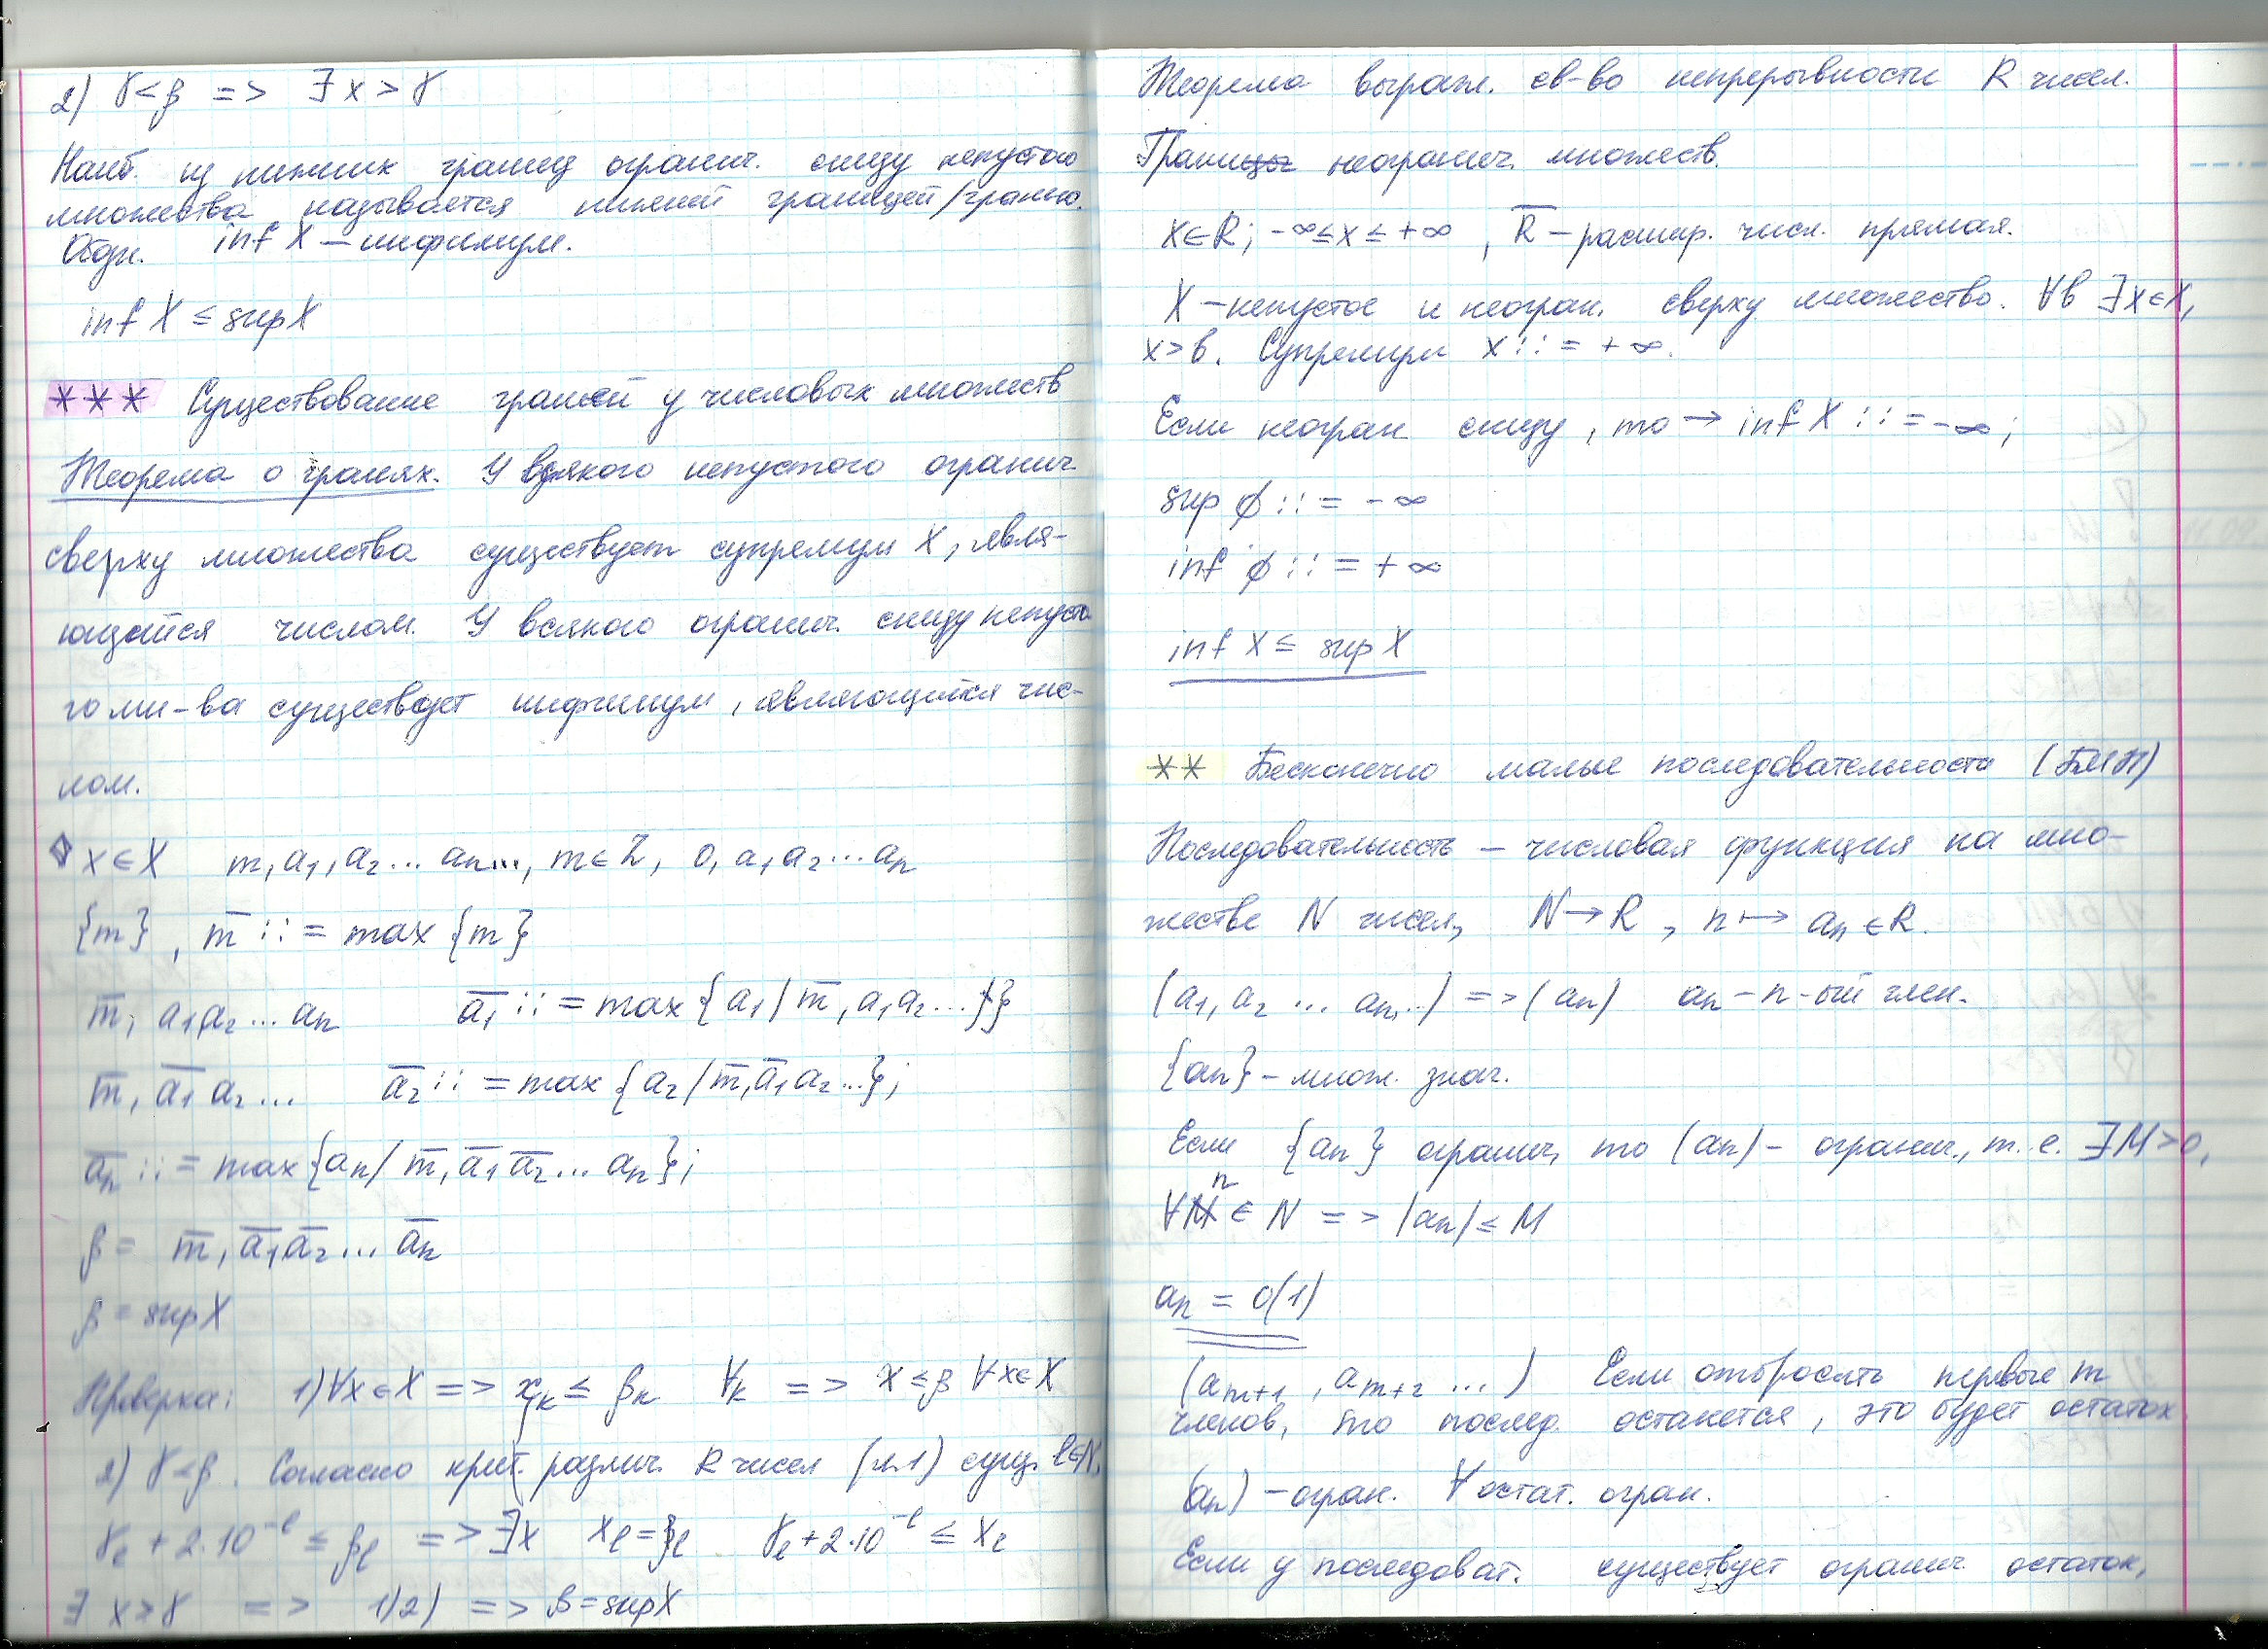 2) γ < β => ∃ x > γ
Наиб. из нижних границ огранич. снизу непустого
множества называется нижней границей/гранью.
Обозн. inf X – инфимум.
inf X ≤ sup X
*** Существование граней у числовых множеств
Теорема о гранях. У всякого непустого огранич.
сверху множества существует супремум X, явля-
ющийся числом. У всякого огранич. снизу непусто
го мн-ва существует инфимум, являющийся чис-
лом.
x ∈ X m, a₁, a₂ ... aₙ..., m ∈ Z, 0, a₁ a₂ ... aₙ
{m}, m̅ ::= max {m}
m̅, a₁ a₂ ... aₙ a̅₁ ::= max {a₁ / m̅, a₁ a₂ ...}
m̅, a̅₁ a₂ ... a̅₂ ::= max {a₂ / m̅, a̅₁ a₂ ...};
a̅ₙ ::= max {aₙ / m̅, a̅₁ a̅₂ ... aₙ};
β = m̅, a̅₁ a̅₂ ... a̅ₙ
β = sup X
Проверка: 1) ∀x ∈ X => xₖ ≤ βₖ ∀ₖ => x ≤ β ∀x ∈ X
2) γ < β. Согласно крит. различ. R чисел (п.1) сущ. l ∈ N,
γₗ + 2·10⁻ˡ ≤ βₗ => ∃x xₗ = βₗ γₗ + 2·10⁻ˡ ≤ xₗ
∃ x > γ => 1)2) => β = sup X
Теорема выраж. св-во непрерывности R чисел.
Границы неогранич. множеств.
x ∈ R; -∞ ≤ x ≤ +∞, R̅ – расшир. числ. прямая.
X – непустое и неогран. сверху множество. ∀b ∃x ∈ X,
x > b. Супремум x ::= +∞.
Если неогран снизу, то → inf X ::= -∞;
sup ∅ ::= -∞
inf ∅ ::= +∞
inf X ≤ sup X
** Бесконечно малые последовательности (БМП)
Последовательность – числовая функция на мно-
жестве N чисел, N → R, n ↦ aₙ ∈ R.
(a₁, a₂ ... aₙ...) => (aₙ) aₙ – n-ый член.
{aₙ} – множ. знач.
Если {aₙ} огранич, то (aₙ) – огранич., т.е. ∃M > 0,
∀n ∈ N => |aₙ| ≤ M
aₙ = O(1)
(aₘ₊₁, aₘ₊₂ ...) Если отбросить первые m
членов, то послед. останется, это будет остаток
(aₙ) – огран. ∀ остат. огран.
Если у последоват. существует огранич. остаток,